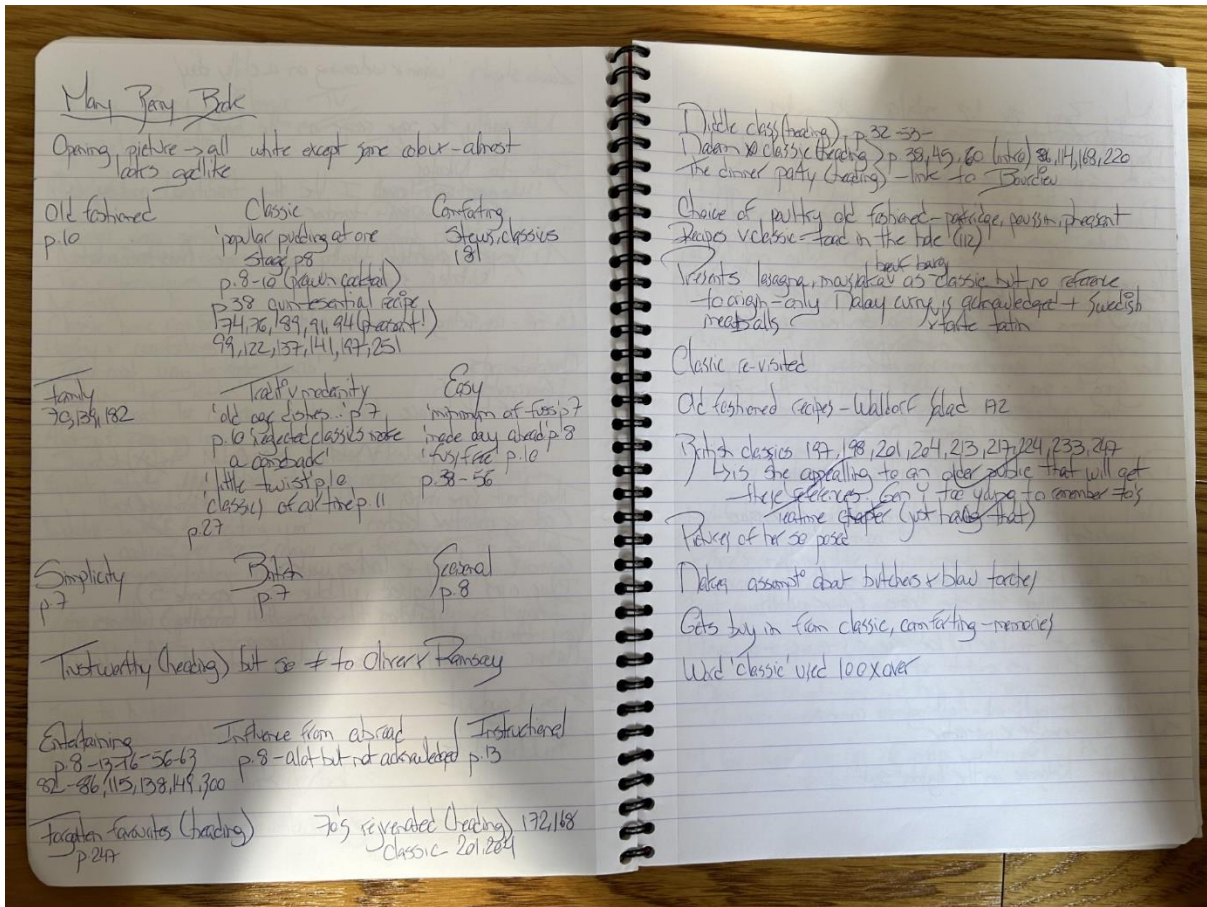 Mary Berry Book
Opening picture → all white except some colour - almost
looks godlike
Old fashioned
p.10
Classic
'popular pudding at one
stage p8
p.8-10 (prawn cocktail)
p38 quintessential recipe
99, 122, 137, 141, 197, 251
Comforting
Stews, classics
181
Family
70, 139, 182
Tradit° v modernity
'old age dishes...' p7
p.10 'rejected classics make
a comeback'
'little twist p.10
'classics of our time p.11
p.27
Easy
'minimum of fuss' p7
'made day ahead' p.8
'fuss free' p.10
p.38-56
Simplicity
p.7
British
p.7
Seasonal
p.8
Trustworthy (heading) but so ≠ to Oliver + Ramsay
Entertaining
p.8-13-16-56-63
82-86, 115, 138, 149, 300
Influence from abroad
p.8 - alot but not acknowledged
Instructional
p.13
Forgotten favourites (heading)
p.247
70's rejuvenated (heading) 172, 168
classic - 201, 204
Middle class (heading) p.32-55-
Modern classic (heading) p.38, 45, 60 (intro) 86, 114, 168, 220
The dinner party (heading) - link to Bourdieu
Choice of poultry old fashioned - partridge, poussin, pheasant
Recipes v classic - toad in the hole (112)
beef bourg
Presents lasagna, moussaka as classic but no reference
to origin - only Malay curry is acknowledged + Swedish
meatballs + tarte tatin
Classic re-visited
Old fashioned recipes - Waldorf Salad
British classics 197, 198, 201, 204, 213, 217, 224, 233, 247
↳ is she appealing to an older public that will get
these references, Gen Y too young to remember 70's
Pictures of her so posed
Makes assumpt° about butchers + blow torches
Gets buy in from classic, comforting - memories
Word 'classic' used 100 x over